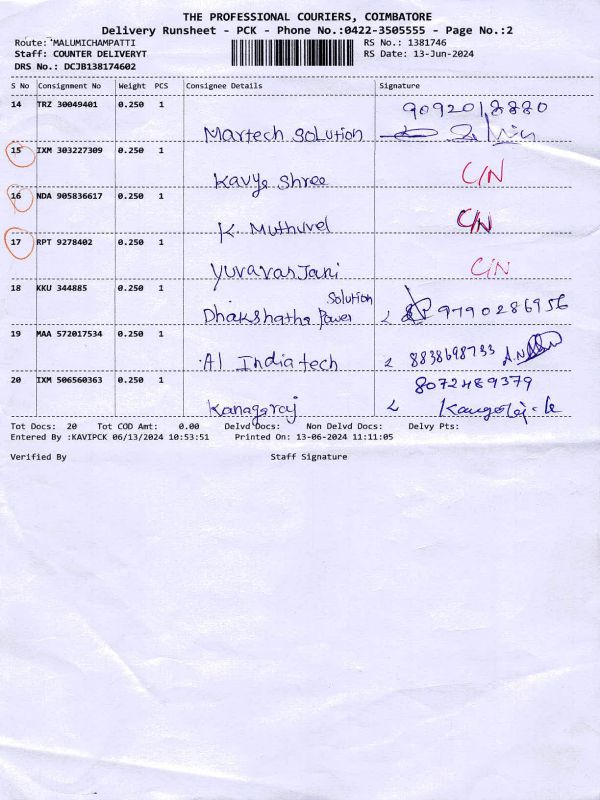 THE PROFESSIONAL COURIERS, COIMBATORE
Delivery Runsheet - PCK - Phone No.:0422-3505555 - Page No.:2
Route: MALUMICHAMPATTI RS No.: 1381746
Staff: COUNTER DELIVERYT RS Date: 13-Jun-2024
DRS No.: DCJB138174602
S No Consignment No Weight PCS Consignee Details Signature
14 TRZ 30049401 0.250 1 9092018880
Martech Solution
15 IXM 303227309 0.250 1
Kavya Shree C/N
16 NDA 905836617 0.250 1
K. Muthuvel C/N
17 RPT 9278402 0.250 1
Yuvavas Jani C/N
18 KKU 344885 0.250 1 Solution
Dhakshatha Power 9790286956
19 MAA 572017534 0.250 1
AI Indiatech 8838698733
20 IXM 506560363 0.250 1 8072489379
Kanagaraj
Tot Docs: 20 Tot COD Amt: 0.00 Delvd Docs: Non Delvd Docs: Delvy Pts:
Entered By :KAVIPCK 06/13/2024 10:53:51 Printed On: 13-06-2024 11:11:05
Verified By Staff Signature